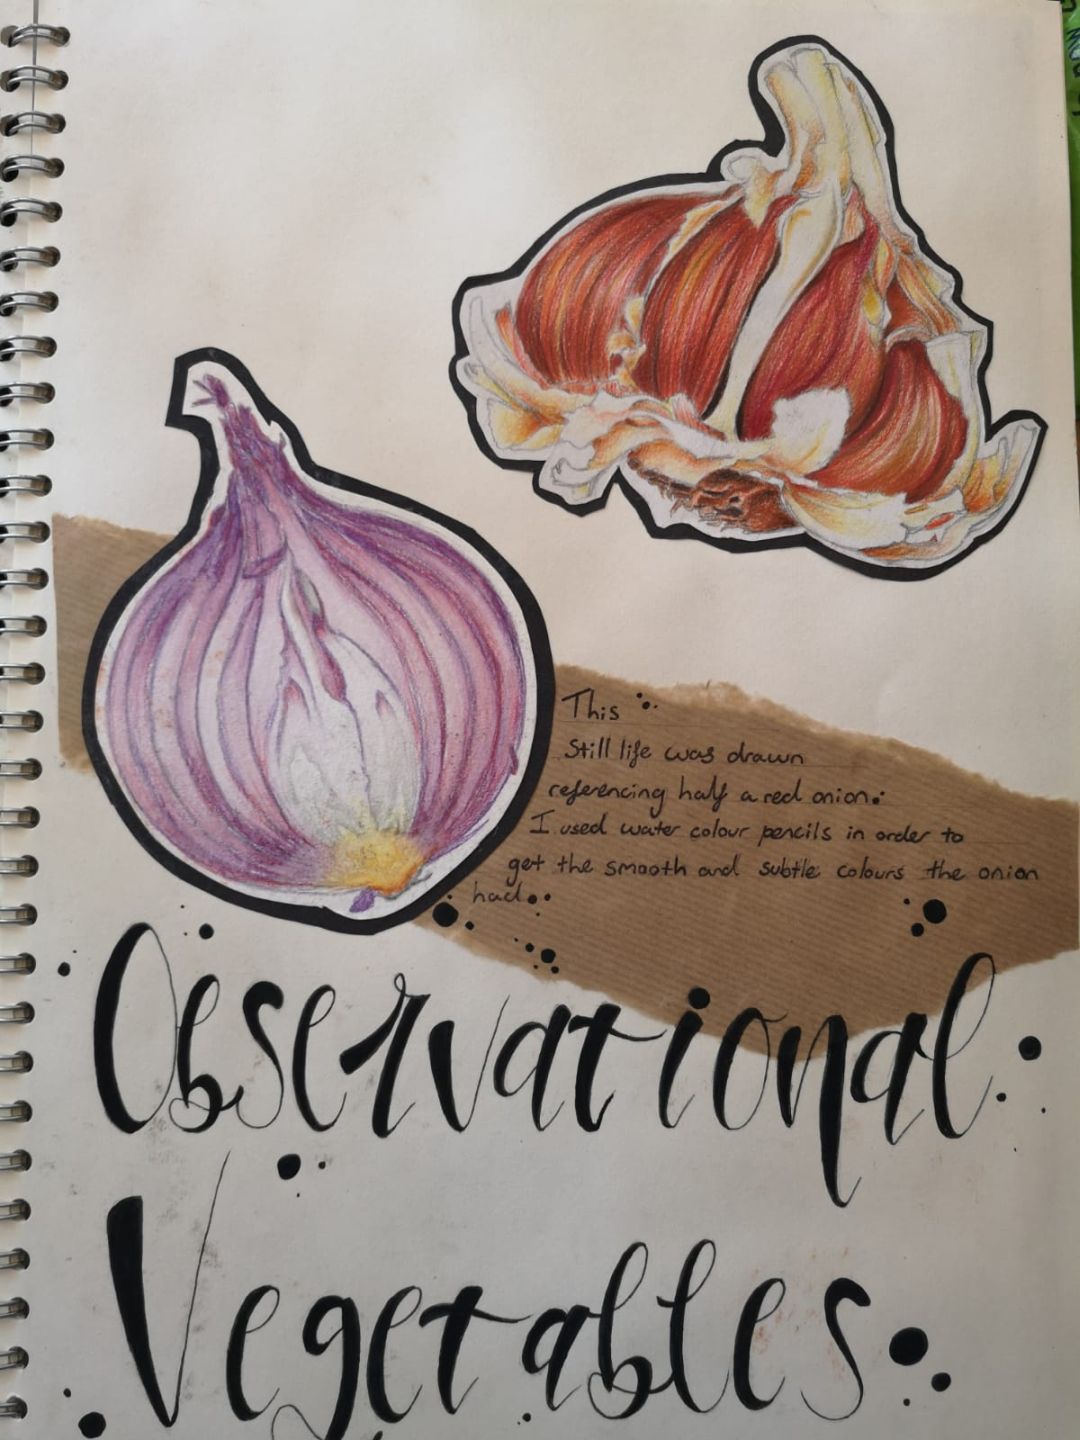 This
Still life was drawn
referencing half a red onion.
I used water colour pencils in order to
get the smooth and subtle colours the onion
had.
Observational
Vegetables